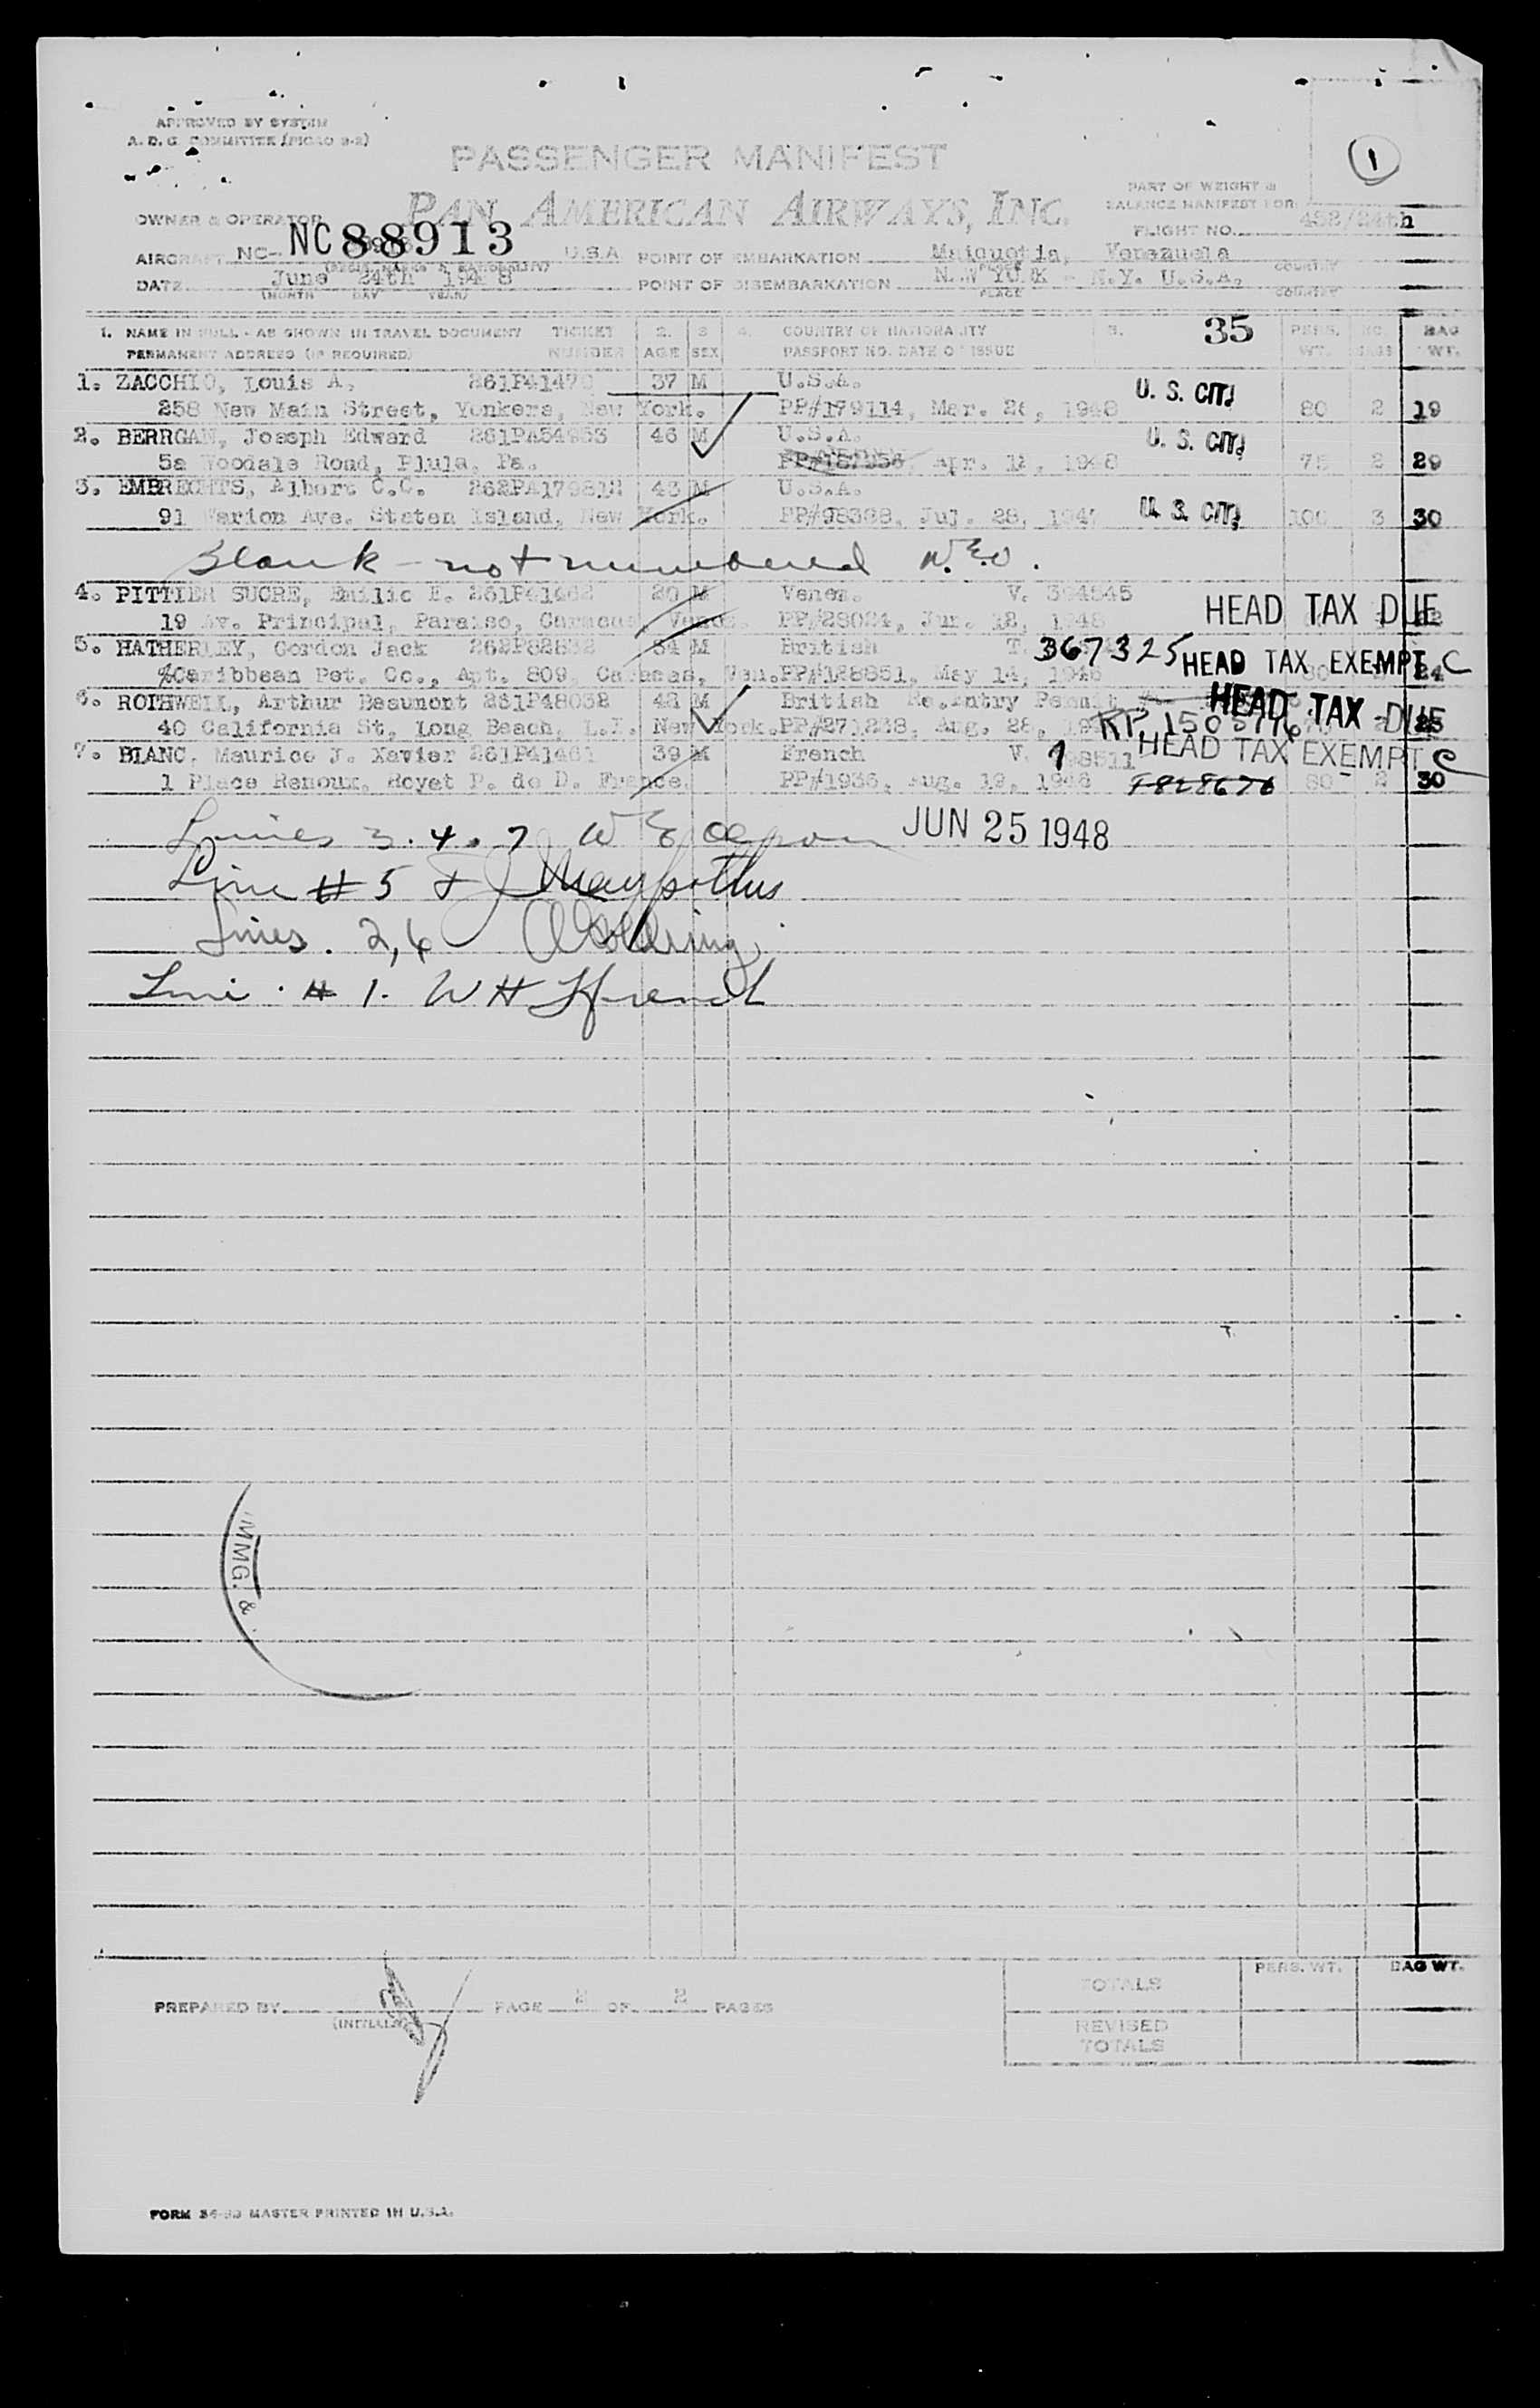 APPROVED BY SYSTEM
A. D. G. COMMITTEE (PICAO 9-2)
1
PASSENGER MANIFEST
PAN AMERICAN AIRWAYS, INC.
PART OF WEIGHT &
BALANCE MANIFEST FOR
FLIGHT NO. 452/24th
OWNER & OPERATOR
AIRCRAFT NC- NC88913 U.S.A POINT OF EMBARKATION Maiquetia, Venezuela
PLACE COUNTRY
DATE June 24th 1948 POINT OF DISEMBARKATION NEW YORK - N.Y. U.S.A.
(MONTH DAY YEAR) PLACE COUNTRY
1. NAME IN FULL - AS SHOWN IN TRAVEL DOCUMENT TICKET 2. 3 4. COUNTRY OF NATIONALITY 5. 35 PERS. NO. BAG
PERMANENT ADDRESS (IF REQUIRED) NUMBER AGE SEX PASSPORT NO. DATE OF ISSUE WT. BAGS WT.
1. ZACCHIO, Louis A. 261P41470 37 M U.S.A. U. S. CIT.
258 New Main Street, Yonkers, New York. PP#179114, Mar. 26, 1948 80 2 19
2. BERRGAN, Joseph Edward 261PA54953 46 M U.S.A. U. S. CIT.
5a Woodale Road, Plula, Pa. Apr. 12, 1948 75 2 29
3. EMBRECHTS, Albert C.C. 262PA179812 43 M U.S.A.
91 Marion Ave. Staten Island, New York. PP#98398, Jul. 28, 1947 U. S. CIT. 100 3 30
Blank - not numbered W.E.O.
4. PITTIER SUCRE, Emilio E. 261P41462 20 M Venez. V. 394545
19 Av. Principal, Paraiso, Caracas, Venez. PP#28024, Jun. 12, 1948 HEAD TAX DUE
5. HATHERLEY, Gordon Jack 262P82832 34 M British T. 367325
%Caribbean Pet. Co., Apt. 809, Caracas, Ven. PP#188851, May 14, 1946 HEAD TAX EXEMPT C 24
6. ROTHWELL, Arthur Beaumont 261P48038 48 M British Re.entry Permit HEAD TAX DUE
40 California St. Long Beach, L.I. New York. PP#271238, Aug. 28, RP 1505776 25
7. BLANC, Maurice J. Xavier 261P41461 39 M French V. 198511 HEAD TAX EXEMPT C
1 Place Renoux, Royat P. de D. France. PP#1936, Aug. 19, 1946 80 2 30
Lines 3. 4. 7 JUN 25 1948
Line # 5
Lines. 2, 6
Line # 1. W H Ffrench
IMMG. &
PREPARED BY PAGE 2 OF 2 PAGES
(INITIALS)
PERS. WT. BAG WT.
TOTALS
REVISED
TOTALS
FORM MASTER PRINTED IN U.S.A.